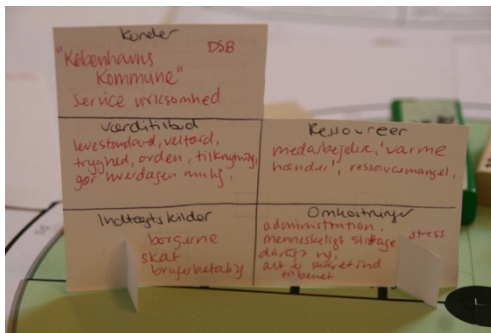 Kunder
"Københavns DSB
Kommune"
Service virksomhed
Værditilbud
levestandard, velfærd,
tryghed, orden, tilknytning,
gør hverdagen mulig.
Ressourcer
medarbejdere, 'varme
hænder', ressourcemangel,
Indtægtskilder
borgerne
skat
brugerbetaling
Omkostninger
administration, stress
menneskeligt slitage
dårligt ry,
alt er skåret ind
til benet